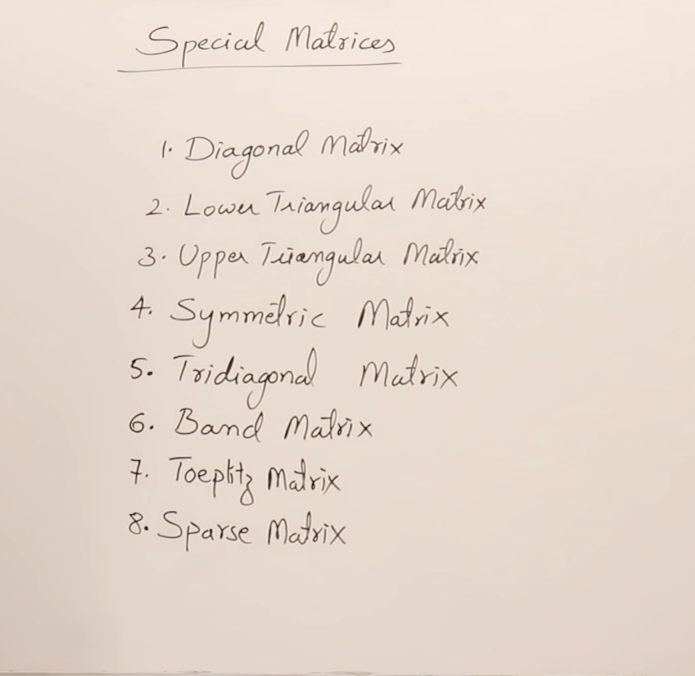 Special Matrices
1. Diagonal Matrix
2. Lower Triangular Matrix
3. Upper Triangular Matrix
4. Symmetric Matrix
5. Tridiagonal Matrix
6. Band Matrix
7. Toeplitz Matrix
8. Sparse Matrix